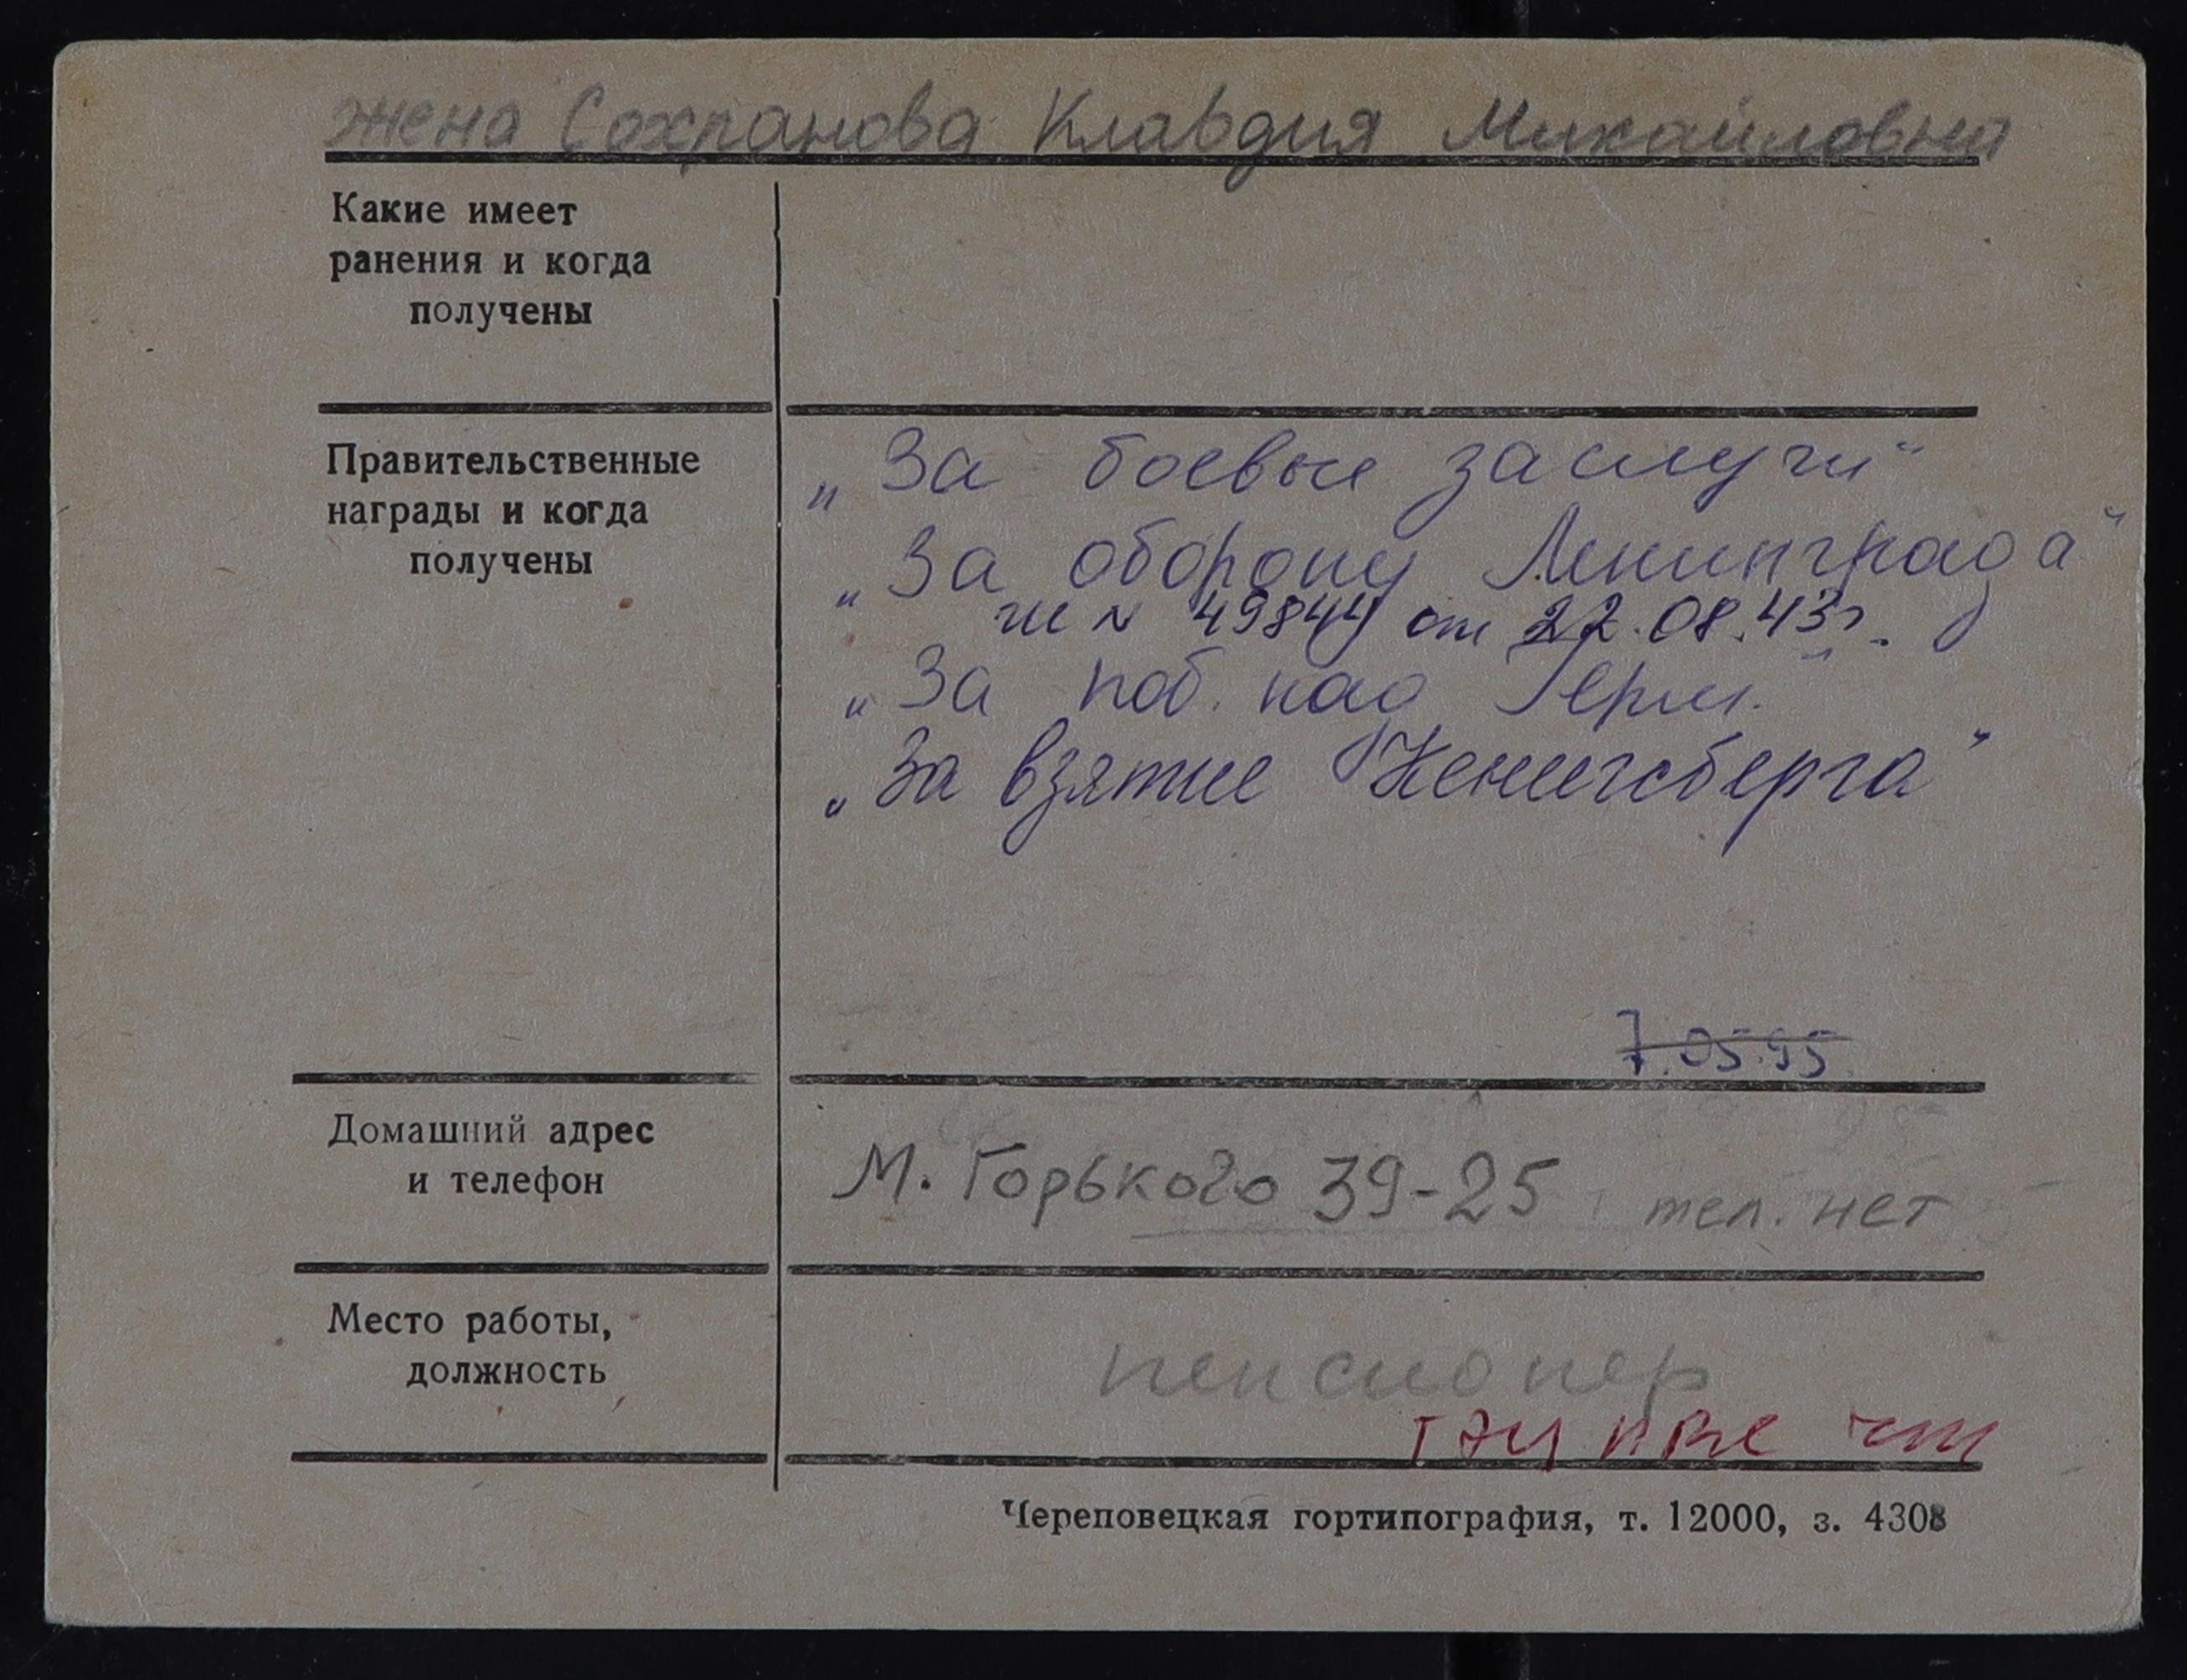 жена Сохранова Клавдия Михайловна
Какие имеет
ранения и когда
получены
Правительственные
награды и когда
получены
„За боевые заслуги“
„За оборону Ленинграда“
№ 49844 от 22.08.43г.
„За поб. над Герм.“
„За взятие Кенигсберга“
7.05.95
Домашний адрес
и телефон
М. Горького 39-25 тел. нет
Место работы,
должность
пенсионер
Череповецкая гортипография, т. 12000, з. 4308